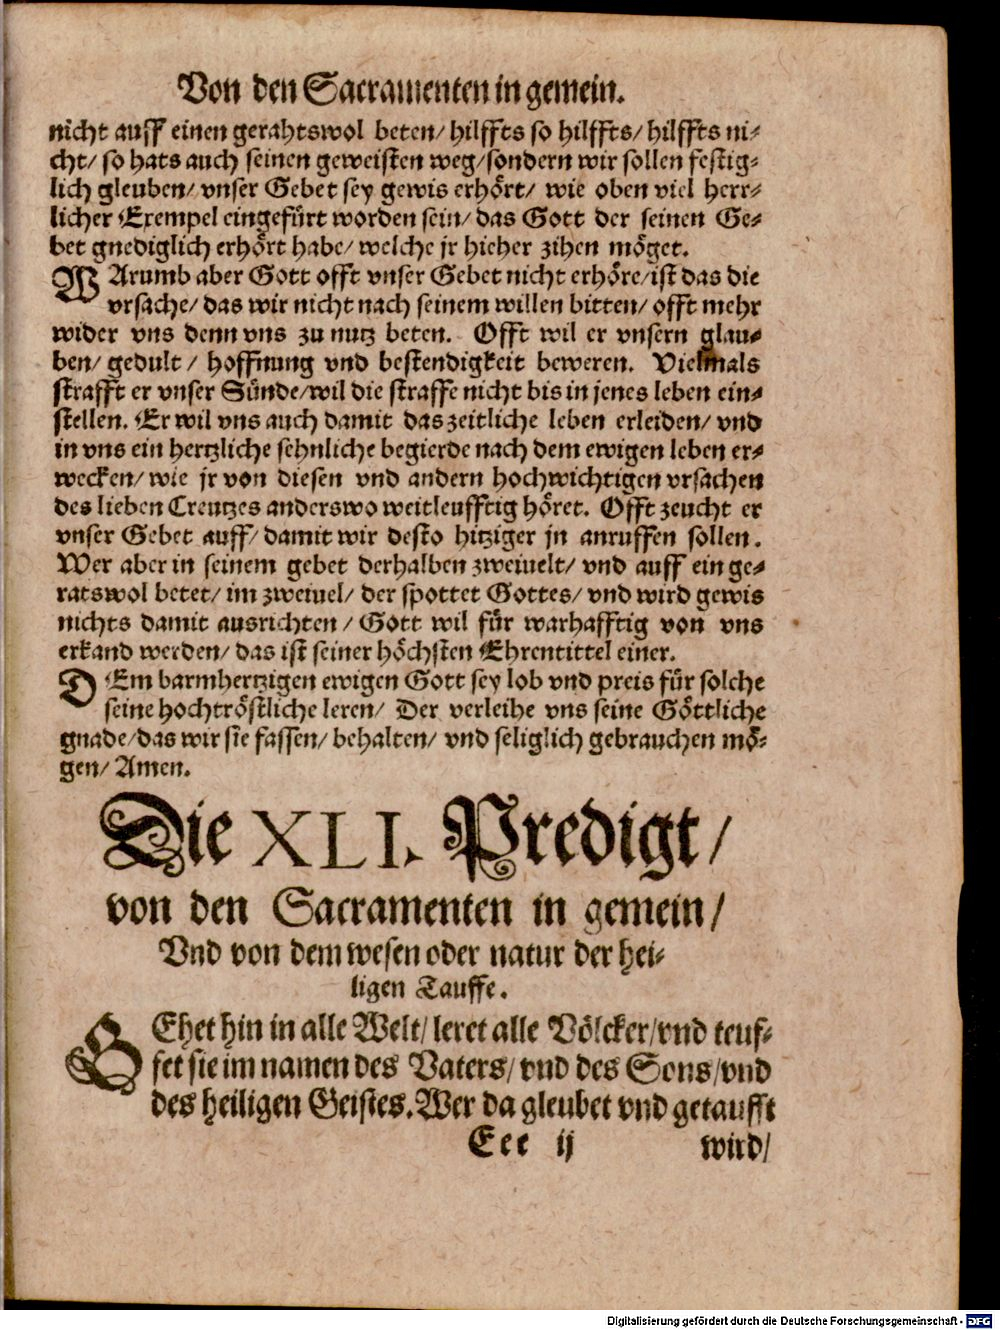 Von den Sacramenten in gemein.
nicht auff einen gerahtswol beten/ hilffts so hilffts/ hilffts ni-
cht/ so hats auch seinen geweisten weg/ sondern wir sollen festig-
lich gleuben/ vnser Gebet sey gewis erhört/ wie oben viel herr-
licher Exempel eingefürt worden sein/ das Gott der seinen Ge-
bet gnediglich erhört habe/ welche jr hieher zihen möget.
WArumb aber Gott offt vnser Gebet nicht erhöre/ ist das die
vrsache/ das wir nicht nach seinem willen bitten/ offt mehr
wider vns denn vns zu nutz beten. Offt wil er vnsern glau-
ben/ gedult/ hoffnung vnd bestendigkeit beweren. Vielmals
strafft er vnser Sünde/ wil die straffe nicht bis in jenes leben ein-
stellen. Er wil vns auch damit das zeitliche leben erleiden/ vnd
in vns ein hertzliche sehnliche begierde nach dem ewigen leben er-
wecken/ wie jr von diesen vnd andern hochwichtigen vrsachen
des lieben Creutzes anderswo weitleufftig höret. Offt zeucht er
vnser Gebet auff/ damit wir desto hitziger jn anruffen sollen.
Wer aber in seinem gebet derhalben zweiuelt/ vnd auff ein ge-
ratswol betet/ im zweiuel/ der spottet Gottes/ vnd wird gewis
nichts damit ausrichten/ Gott wil für warhafftig von vns
erkand werden/ das ist seiner höchsten Ehrentittel einer.
DEm barmhertzigen ewigen Gott sey lob vnd preis für solche
seine hochtröstliche leren/ Der verleihe vns seine Göttliche
gnade/ das wir sie fassen/ behalten/ vnd seliglich gebrauchen mö-
gen/ Amen.
Die XLI. Predigt/
von den Sacramenten in gemein/
Vnd von dem wesen oder natur der hei-
ligen Tauffe.
GEhet hin in alle Welt/ leret alle Völcker/ vnd teuf-
fet sie im namen des Vaters/ vnd des Sons/ vnd
des heiligen Geistes. Wer da gleubet vnd getaufft
Eee ij wird/
Digitalisierung gefördert durch die Deutsche Forschungsgemeinschaft - DFG